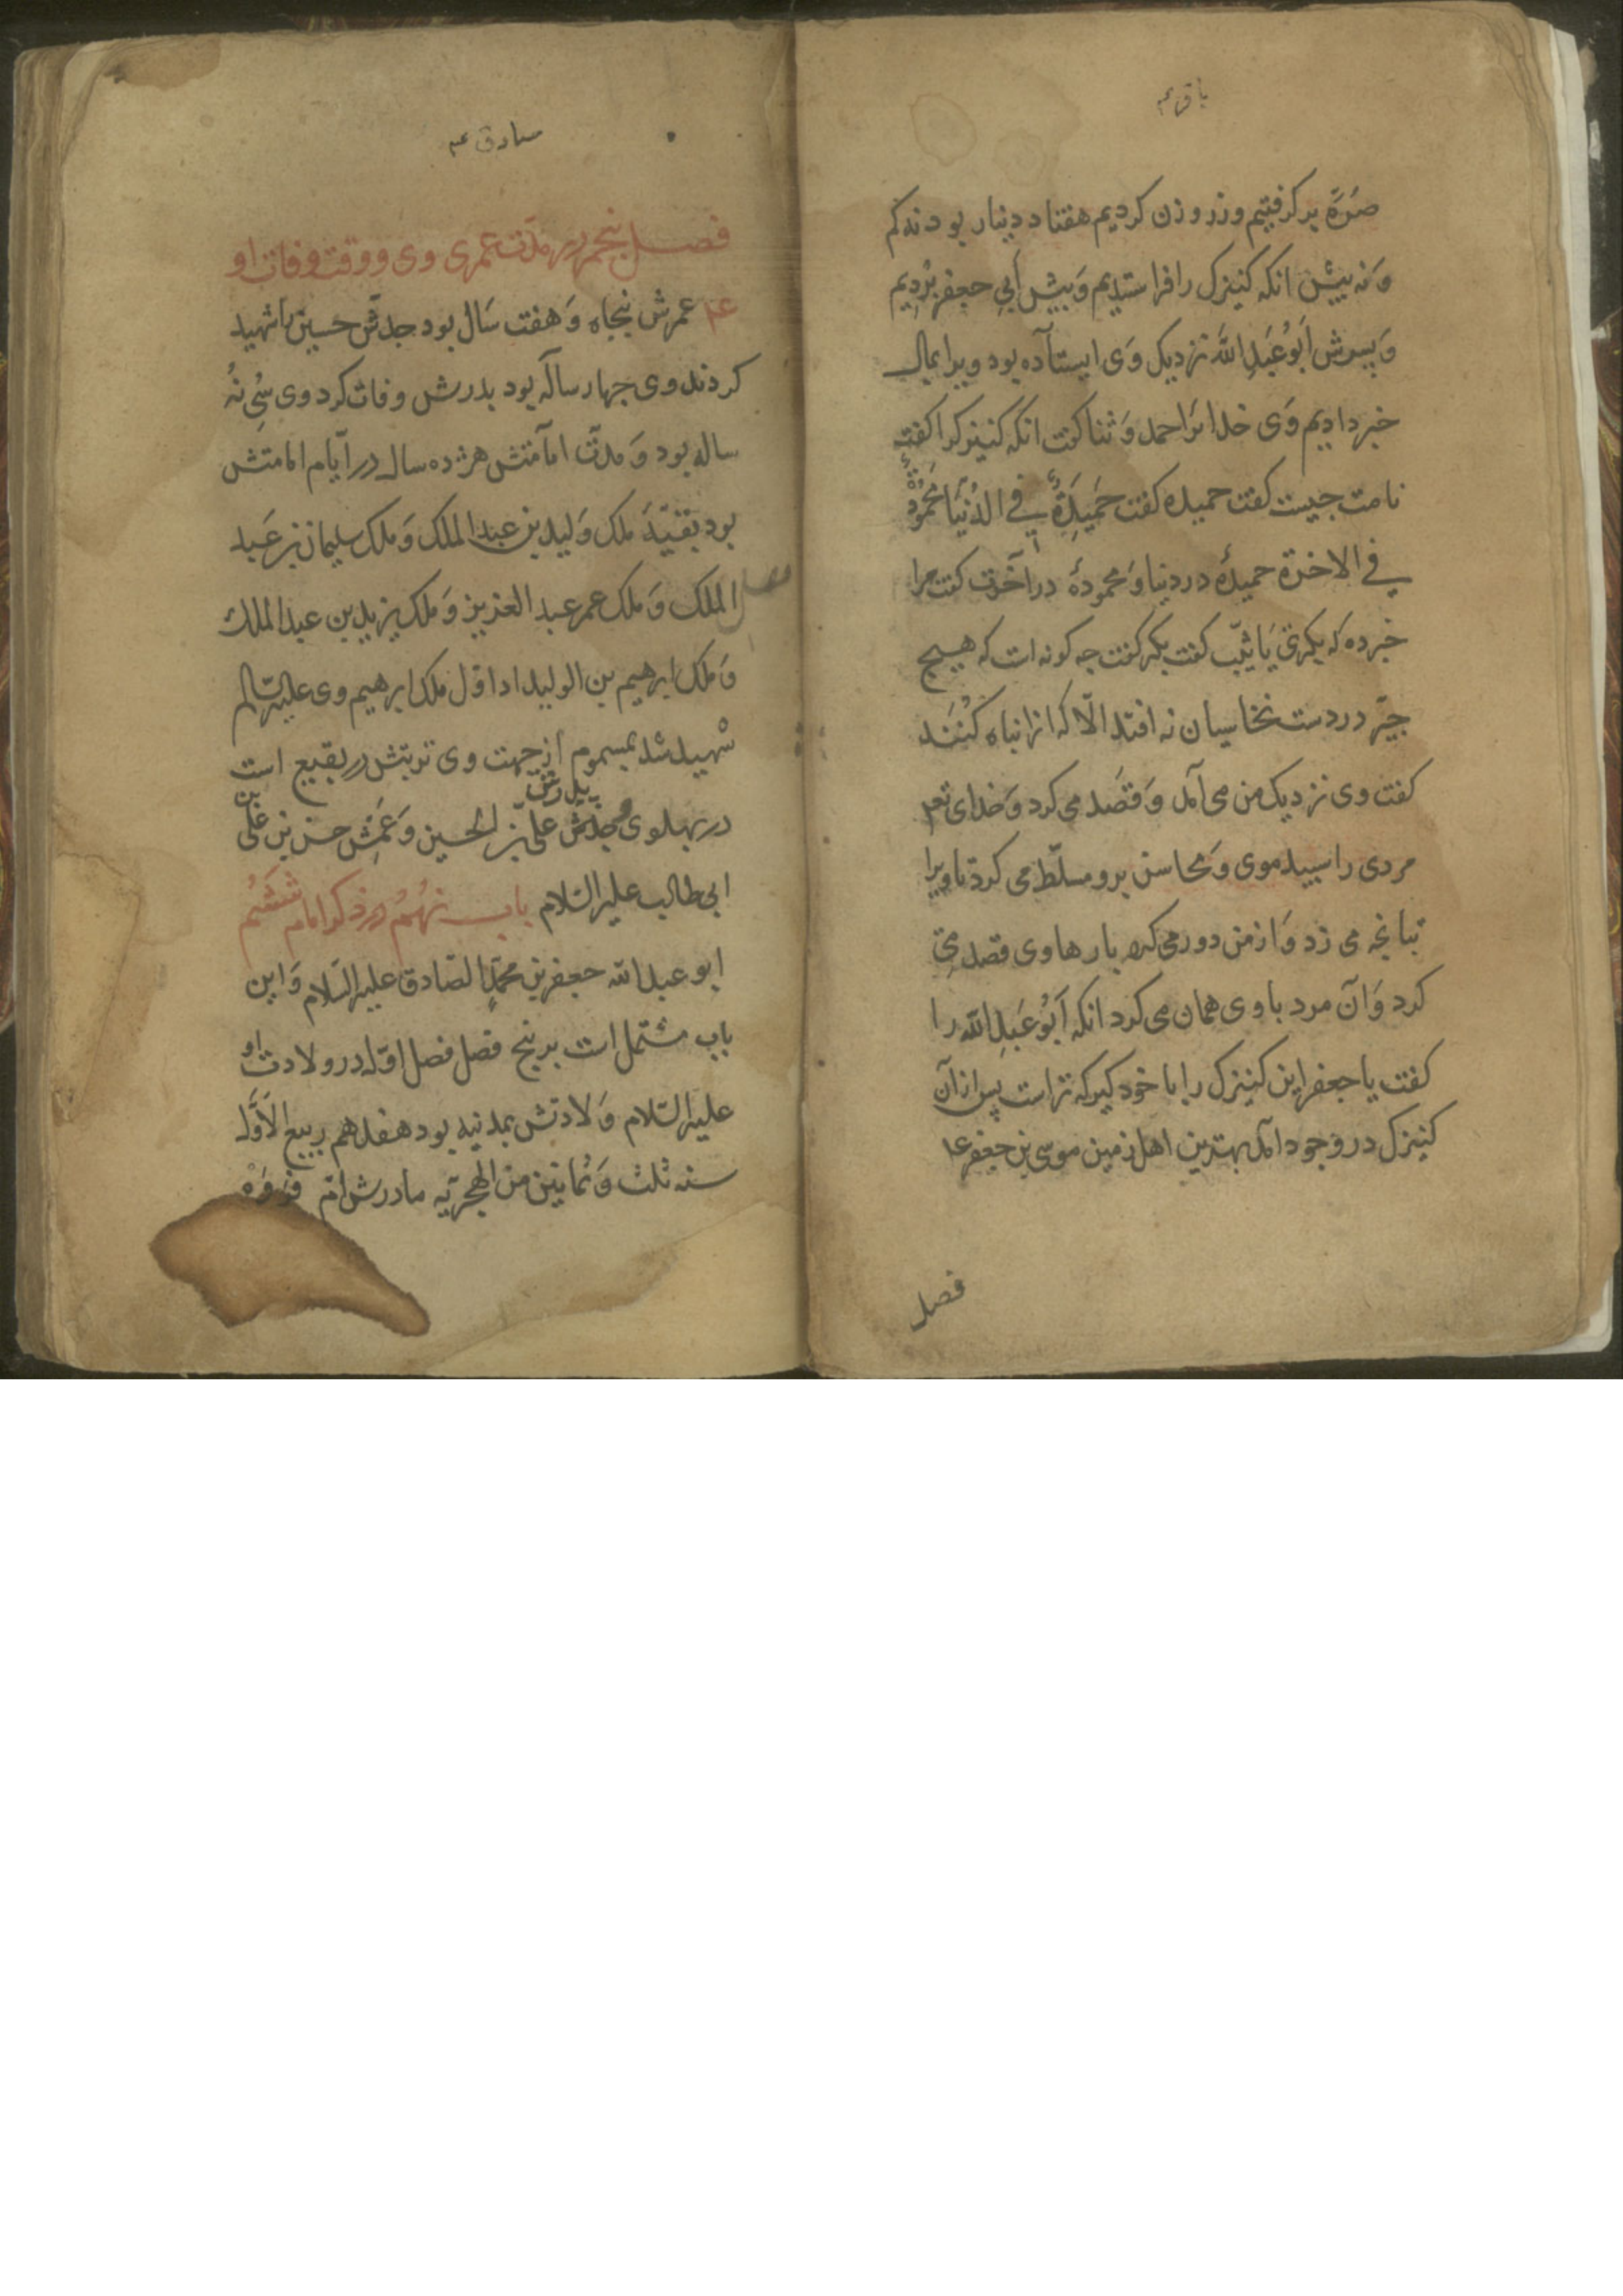 باقر عم
صُرّهٔ برگرفتیم و زر وزن کردیم هفتاد دینار بود نه کم
وَ نه بیش انکه کنیزک را فراستدیم وَ بیش اَبی جعفر بُردیم
وَ پسرش اَبُو عَبدِ اللّه نزدیک وَی ایستاده بود ویرا بمال
خبر دادیم وَی خدایرَا حمد وَ ثنا کفت انکه کنیزک را کفت
نامت جیست کفت حمیده کفت حَمیِدَةٌ فی الدُنیَا مَحمُودَةٌ
فی الاخرة حمیدهٔ در دنیا وَ محمودهٔ در آخرت کفت مرا
خبر ده که بکری یَا ثیّب کفت بکر کفت جه کونه است که هیچ
جیز در دست نخاسیان نه افتد الّا که انرا تباه کُنَند
کفت وی نزدیک من می آمد وَ قصَد می کرد وَ خدای تعم
مردی را سبید موی وَ محاسن برو مسلّط می کرد تا ویرا
تبانجه می زد وَ از من دور می کرد بارها وی قصد می
کرد وَ آن مرد با وی همان می کرد انکه اَبُو عَبدِ اللّه را
کفت یا جعفر این کنیزک را با خود کیر که تراست پس از آن
کنیزک در وجود امد بهترین اهل زمین موسی بن جعفر عم
فصل
صادق عم
فصل پنجم در مدّت عمری وی و وقت وفات او
عم عمرش پنجاه وَ هفت سَال بود جدّش حسین را شهید
کردند وی جهار ساله بود بدرش وفات کرد وی سُی نُه
ساله بود وَ مدّت امامتش هژده سال در ایّام امامتش
بود بقیّهٔ ملک وَلید بن عبد الملک وَ ملک سلیمان بن عَبد
الملک وَ ملک عمر عبد العزیز وَ ملک یزید بن عبد الملک
وَ ملک ابرهیم بن الولید ادا اوّل ملک ابرهیم وی علیه السّلم
شهید شد بمسموم از جهت وی تربتش در بقیع است
در بهلوی پدرش و جدّش علی بن الحسین وَ عَمّش حسن بن علی بن
ابی طالب علیه السّلام باب نهُم در ذکر امام ششُم
ابو عبد اللّه جعفر بن محمّد الصّادق علیه السّلام وَ این
باب مشتمل است بر پنج فصل فصل اوّل در ولادت او
علیه السّلام وَلادتش بمدنیه بود هفدهم ربیع الاوّل
سنه ثلث وَ ثمانین من الهجریّه مادرش امّ فروَه